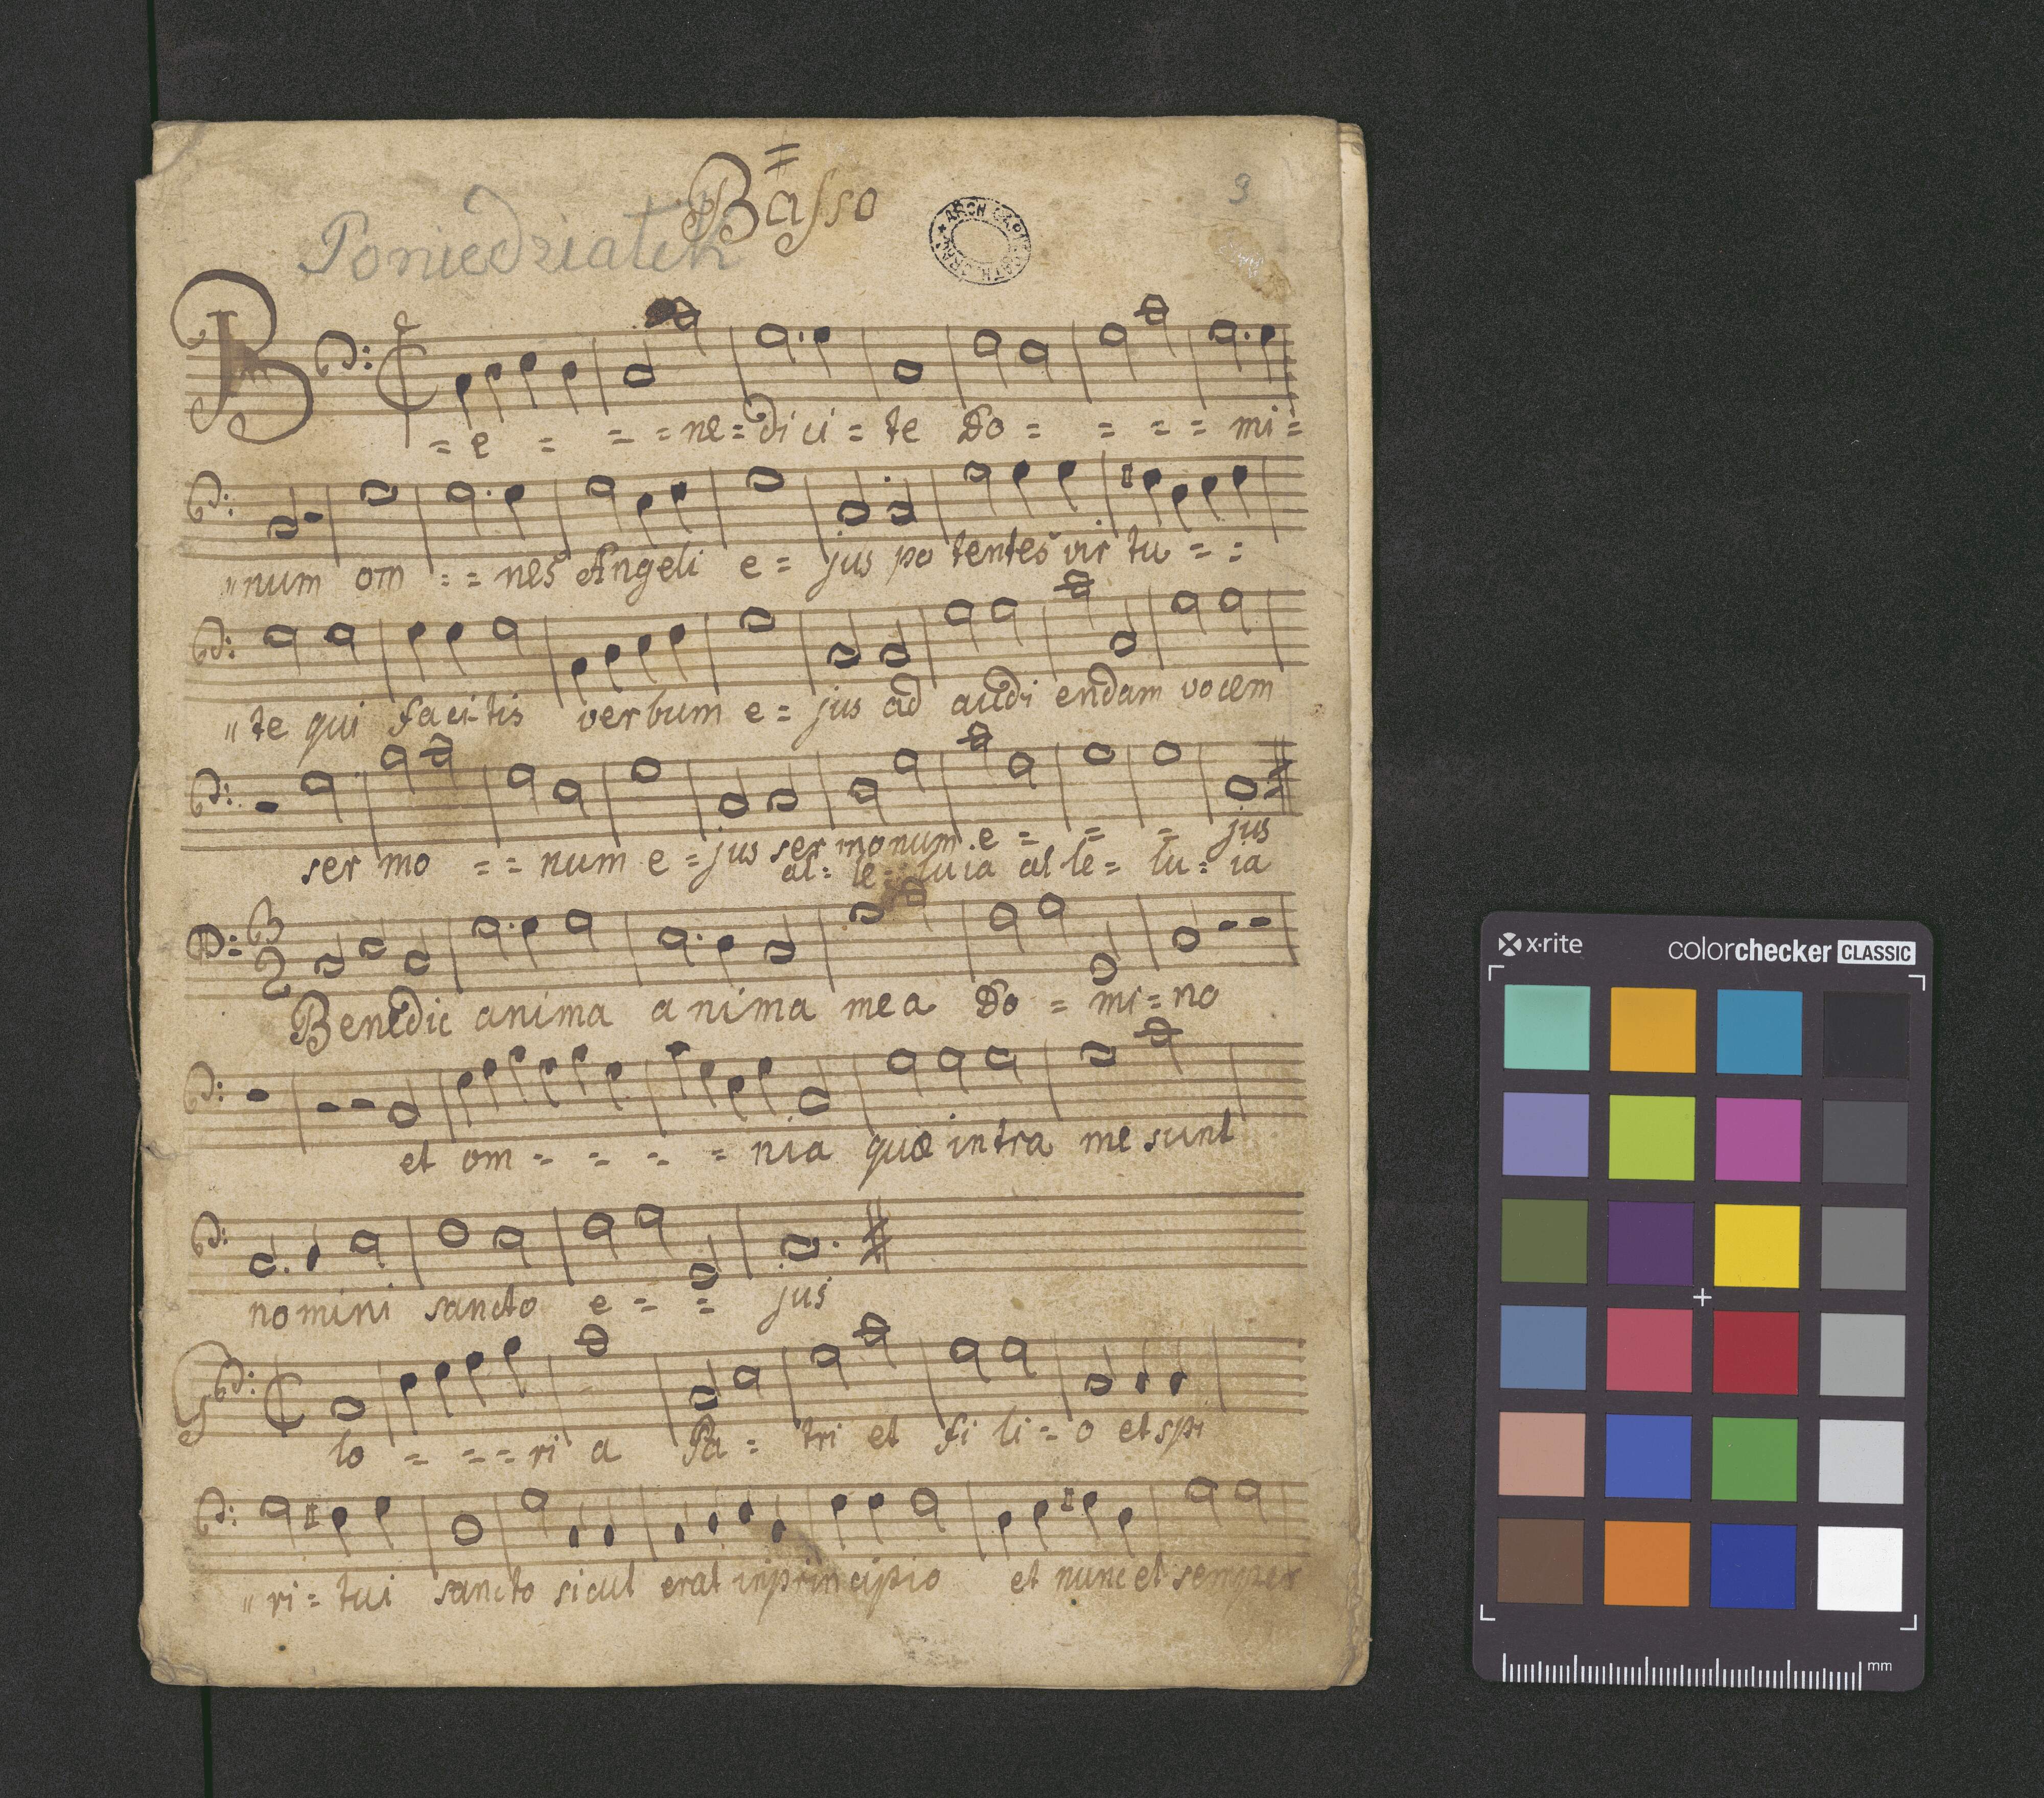 Basso
9
Poniedziałek
ARCH CAPIT CATH CRAC
B = e = = = ne = di ci = te Do = = = = mi =
" num om = = nes Angeli e = jus po tentes vir tu = =
" te qui faci-tis verbum e = jus ad audi endam vocem
ser mo = = num e = jus ser monum e = = = jus
al = le = luia al le = lu = ia
3
2
Benedic anima a nima mea Do = mi = no
et om = = = = nia quæ intra me sunt
nomini sancto e = = jus
G lo = = = ri a Pa = tri et fi li = o et spi
" ri = tui sancto sicut erat in principio et nunc et semper
x·rite colorchecker CLASSIC
mm